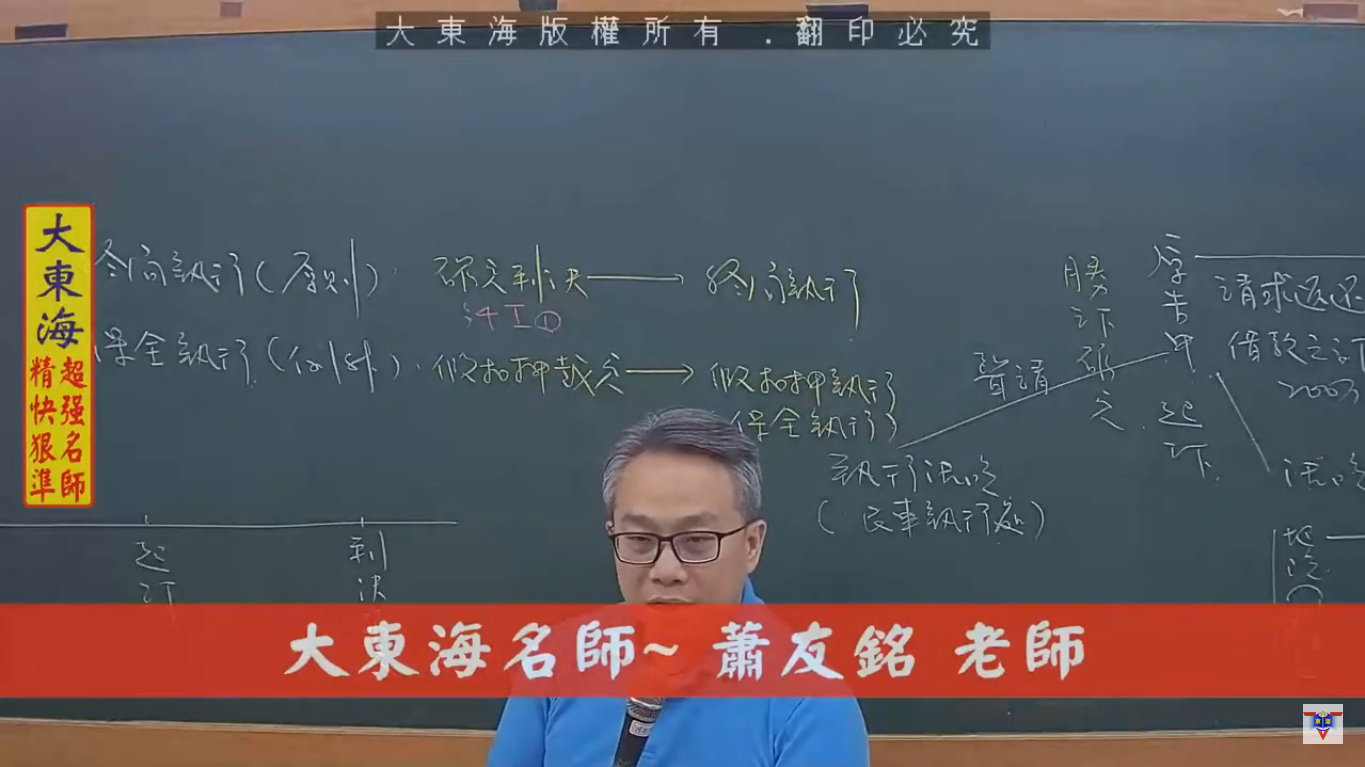 大東海版權所有 .翻印必究
大東海
精快狠準
超强名師
終局執行(原則).
確定判決 → 終局執行
§4 I ①
保全執行(例外).
假扣押裁定 → 假扣押執行
保全執行)
聲請
勝訴確定
原告甲
起訴
請求返還
借款之訴
200萬
執行法院
(民事執行處)
法院
地院
起訴
判決
大東海名師~ 蕭友銘 老師